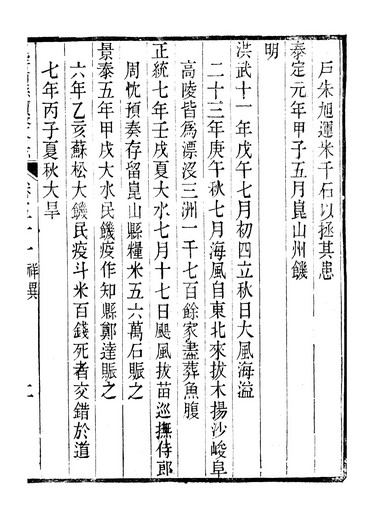 戶朱旭運米千石以拯其患
泰定元年甲子五月崑山州饑
明
洪武十一年戊午七月初四立秋日大風海溢
二十三年庚午秋七月海風自東北來拔木揚沙峻阜
高陵皆爲漂沒三洲一千七百餘家盡葬魚腹
正統七年壬戌夏大水七月十七日颶風拔苗巡撫侍郎
周忱預奏存留崑山縣糧米五六萬石賑之
景泰五年甲戌大水民饑疫作知縣鄭達賑之
六年乙亥蘇松大饑民疫斗米百錢死者交錯於道
七年丙子夏秋大旱
祥異